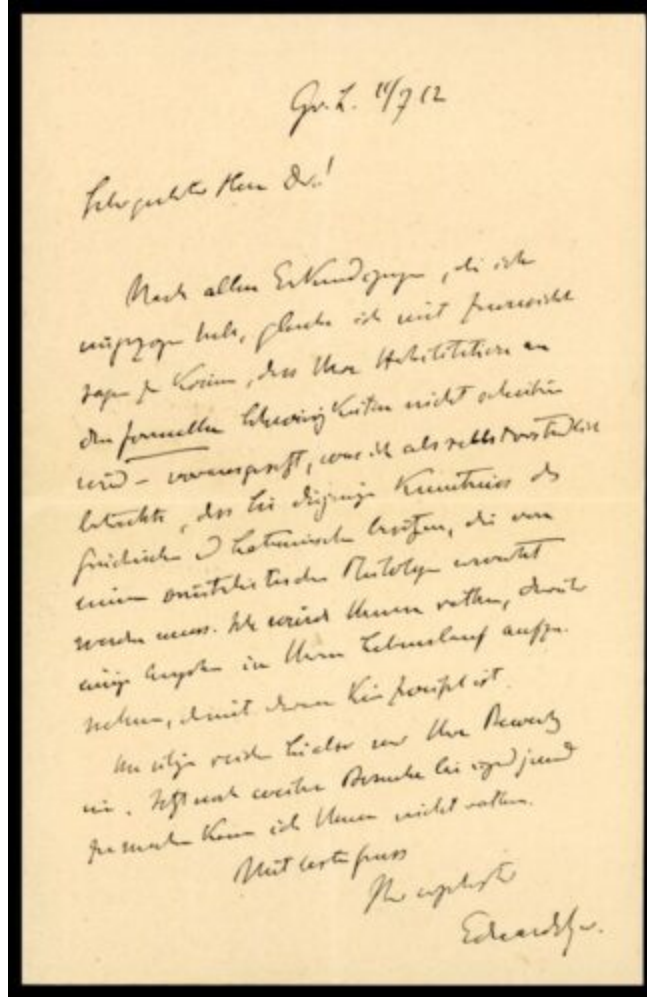 Gr. L. 11/7 12
Sehr geehrter Herr Dr.!
Nach allen Erkundigungen, die ich
eingezogen habe, glaube ich mit Zuversicht
sagen zu können, dass Ihre Habilitation an
den formellen Schwierigkeiten nicht scheitern
wird – vorausgesetzt, was ich als selbstverständlich
betrachte, dass Sie diejenige Kenntniss des
Griechischen u Lateinischen besitzen, die von
einem orientalistischen Philologen erwartet
werden muss. Ich würde Ihnen rathen, darüber
einige Angaben in Ihren Lebenslauf aufzu-
nehmen, damit daran kein Zweifel ist.
Im übrigen reichen Sie also nur Ihre Bewerbg
ein. Jetzt noch weitere Besuche bei irgend jemand
zu machen kann ich Ihnen nicht rathen.
Mit bestem Gruss
Ihr ergebenster